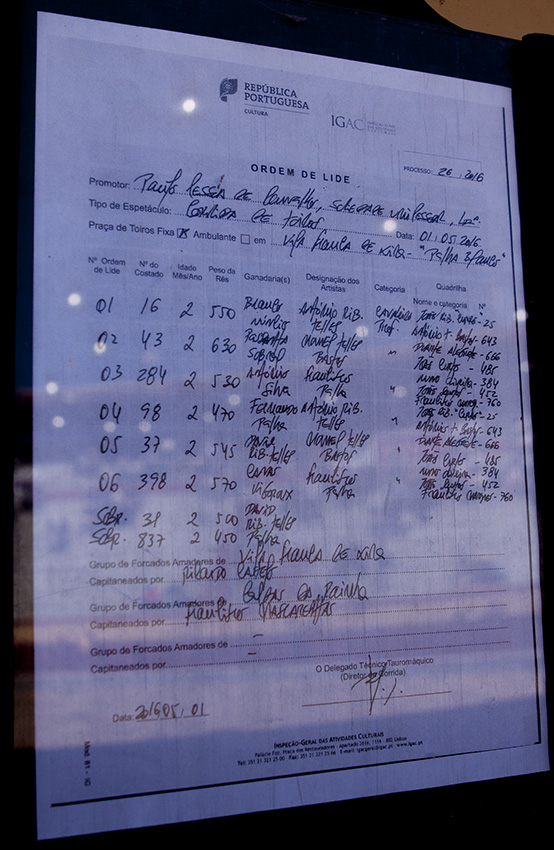 REPÚBLICA
PORTUGUESA
CULTURA
IGAC
ORDEM DE LIDE
PROCESSO: 26 / 2016
Promotor: Paulo Pessoa de Carvalho, Sociedade Unipessoal, Lda.
Tipo de Espetáculo: Corrida de Toiros Data: 01/05/2016
Praça de Toiros Fixa X Ambulante em Vila Franca de Xira - "Palha Blanco"
Nº Ordem de Lide Nº do Costado Idade Mês/Ano Peso da Rês Ganadaria(s) Designação dos Artistas Categoria Quadrilha
Nome e categoria Nº
01 16 2 550 António Rib. Telles Cavaleiro - 25
02 43 2 630 Manuel Telles Bastos " António Bastos - 643
Duarte Alegrete - 666
03 284 2 530 António Silva Francisco Palha " - 485
Nuno Oliveira - 384
João Santos - 452
Francisco - 760
04 98 2 470 Fernando Palha António Rib. Telles " - 25
05 37 2 545 David Rib. Telles Manuel Telles Bastos " António Bastos - 643
Duarte Alegrete - 666
06 398 2 570 Canas Vigouroux Francisco Palha " - 485
Nuno Oliveira - 384
João Santos - 452
Francisco - 760
Sobr. 31 2 500 David Rib. Telles
Sobr. 837 2 450 Palha
Grupo de Forcados Amadores de Vila Franca de Xira
Capitaneados por Ricardo
Grupo de Forcados Amadores de Caldas da Rainha
Capitaneados por Francisco Mascarenhas
Grupo de Forcados Amadores de -
Capitaneados por -
O Delegado Técnico Tauromáquico
(Diretor de Corrida)
Data: 2016/05/01
INSPEÇÃO-GERAL DAS ATIVIDADES CULTURAIS
Palácio Foz, Praça dos Restauradores - Apartado 2616, 1116 - 802 Lisboa
Tel: 351 21 321 25 00 Fax: 351 21 321 25 66 E-mail: igacgeral@igac.pt, www.igac.pt
Mod. 81 - IG